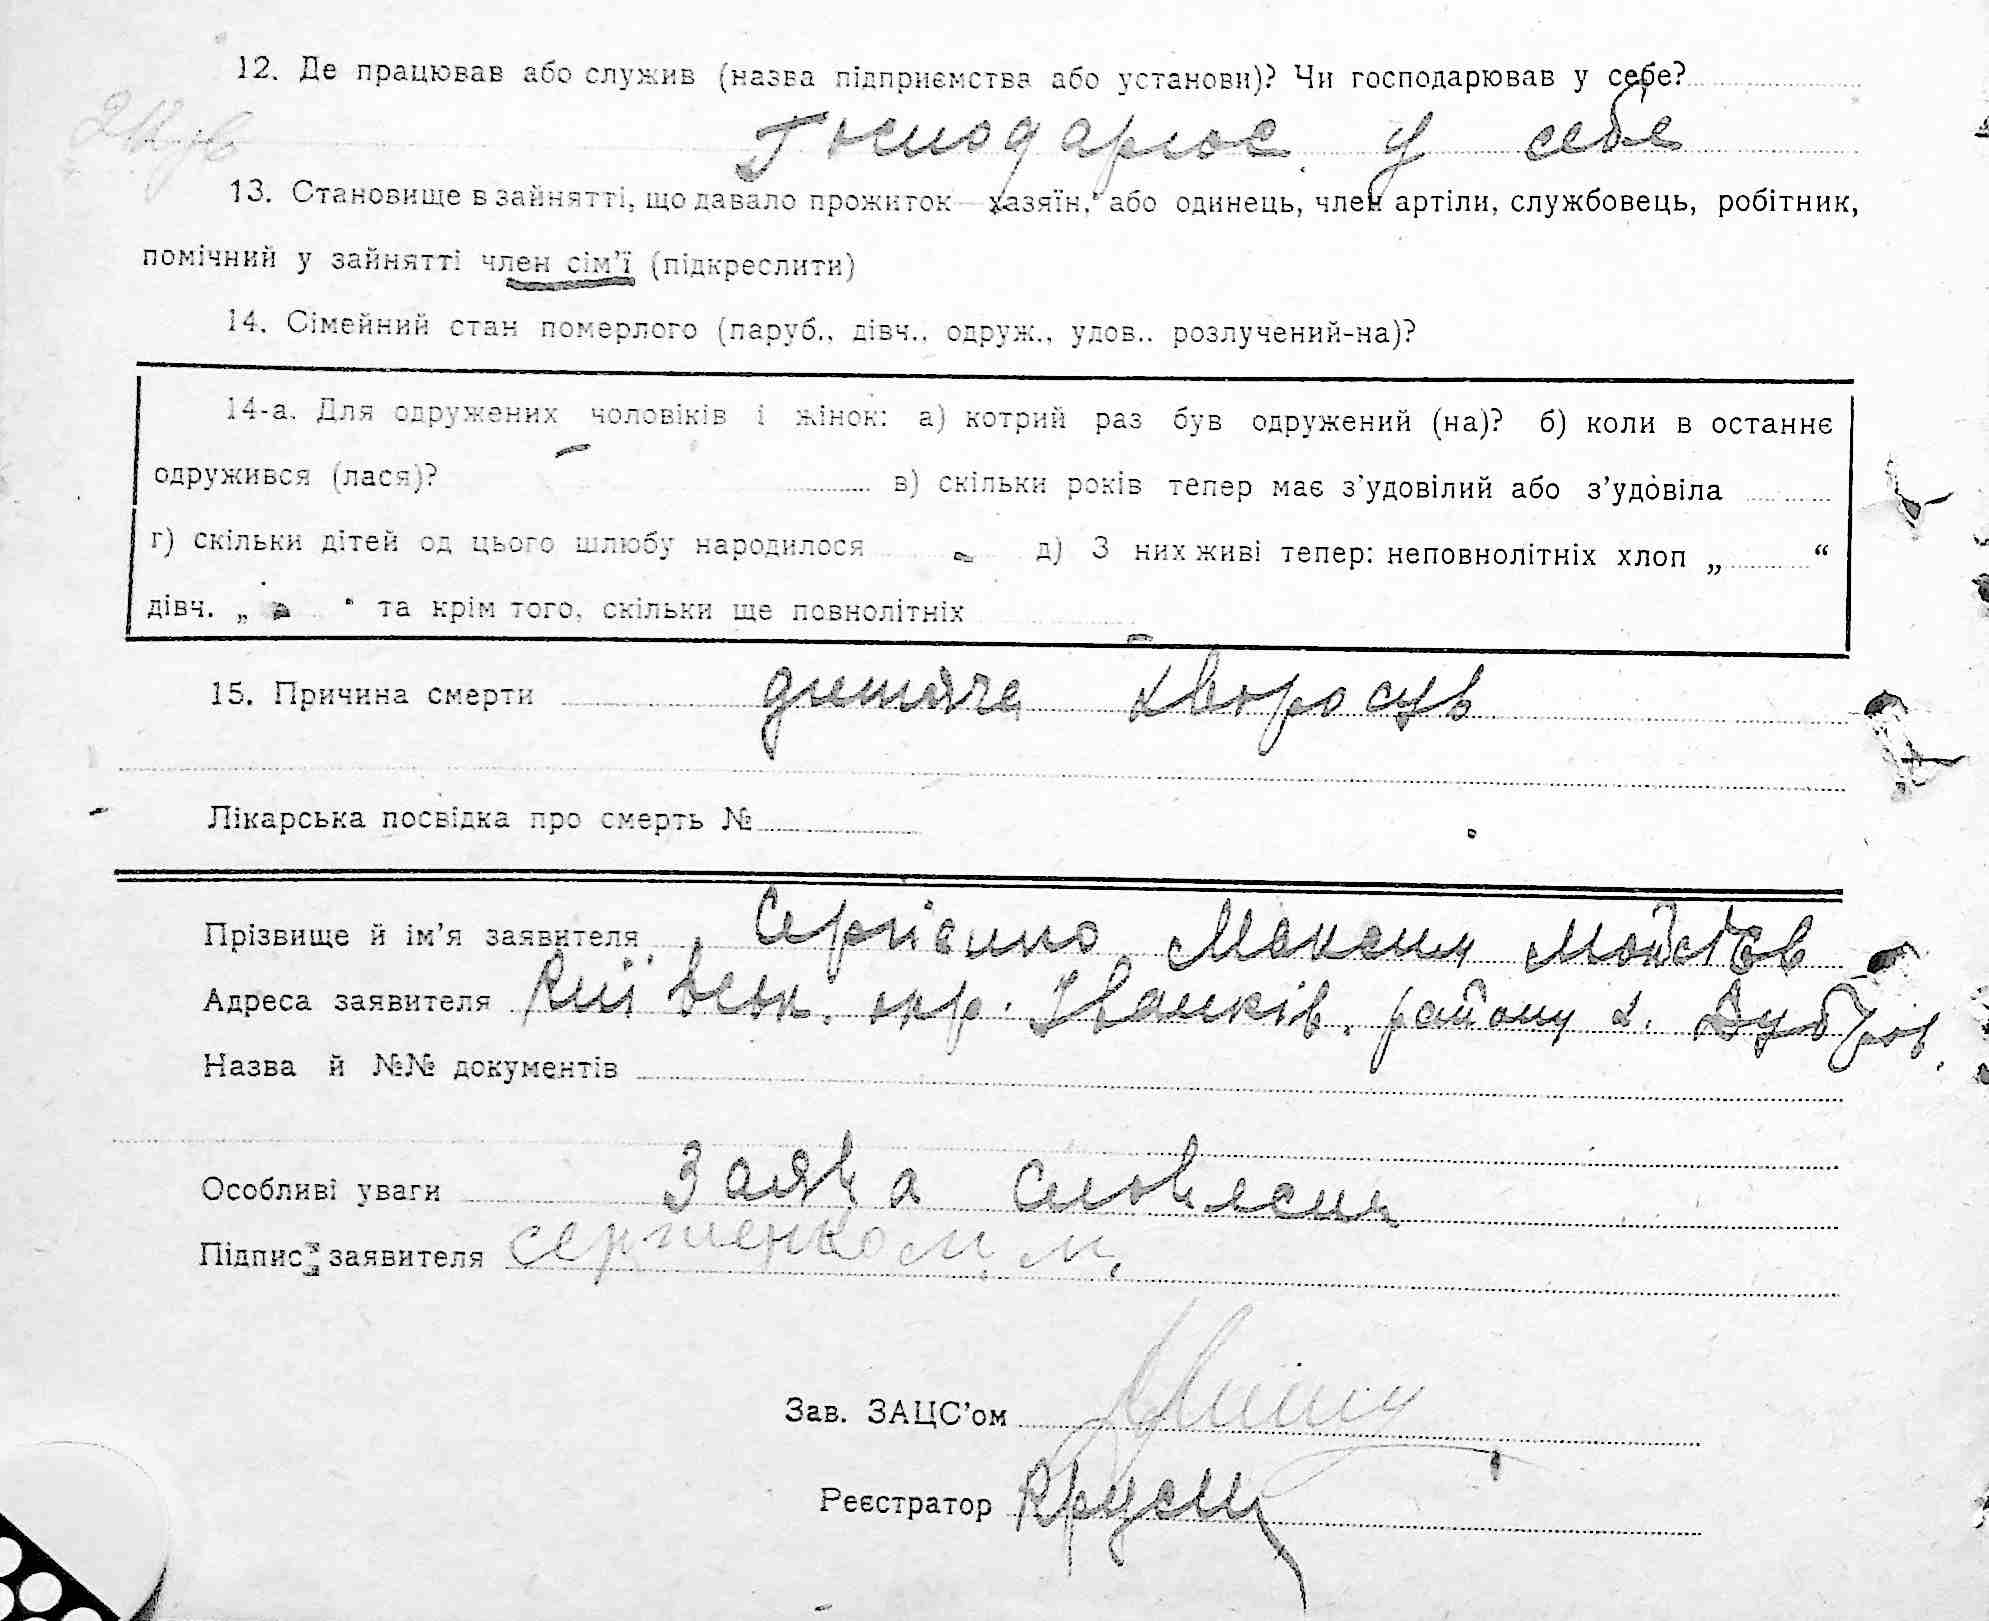 12. Де працював або служив (назва підприємства або установи)? Чи господарював у себе?
Господарює у себе
13. Становище в зайнятті, що давало прожиток — хазяїн, або одинець, член артіли, службовець, робітник,
помічний у зайнятті член сім’ї (підкреслити)
14. Сімейний стан померлого (паруб., дівч., одруж., удов.. розлучений-на)?
14-а. Для одружених чоловіків і жінок: а) котрий раз був одружений (на)? б) коли в останнє
одружився (лася)? в) скільки років тепер має з’удовілий або з’удовіла
г) скільки дітей од цього шлюбу народилося д) З них живі тепер: неповнолітніх хлоп „ “
дівч. „ “ та крім того, скільки ще повнолітніх
15. Причина смерти дитяча хворость
Лікарська посвідка про смерть №
Прізвище й ім’я заявителя Сергієнко Максим Мойсієв
Адреса заявителя Київськ. окр. Іванків. району х. Дубров.
Назва й №№ документів
Особливі уваги Заява словесна
Підпис заявителя сергиенко м. м.
Зав. ЗАЦС’ом
Реєстратор